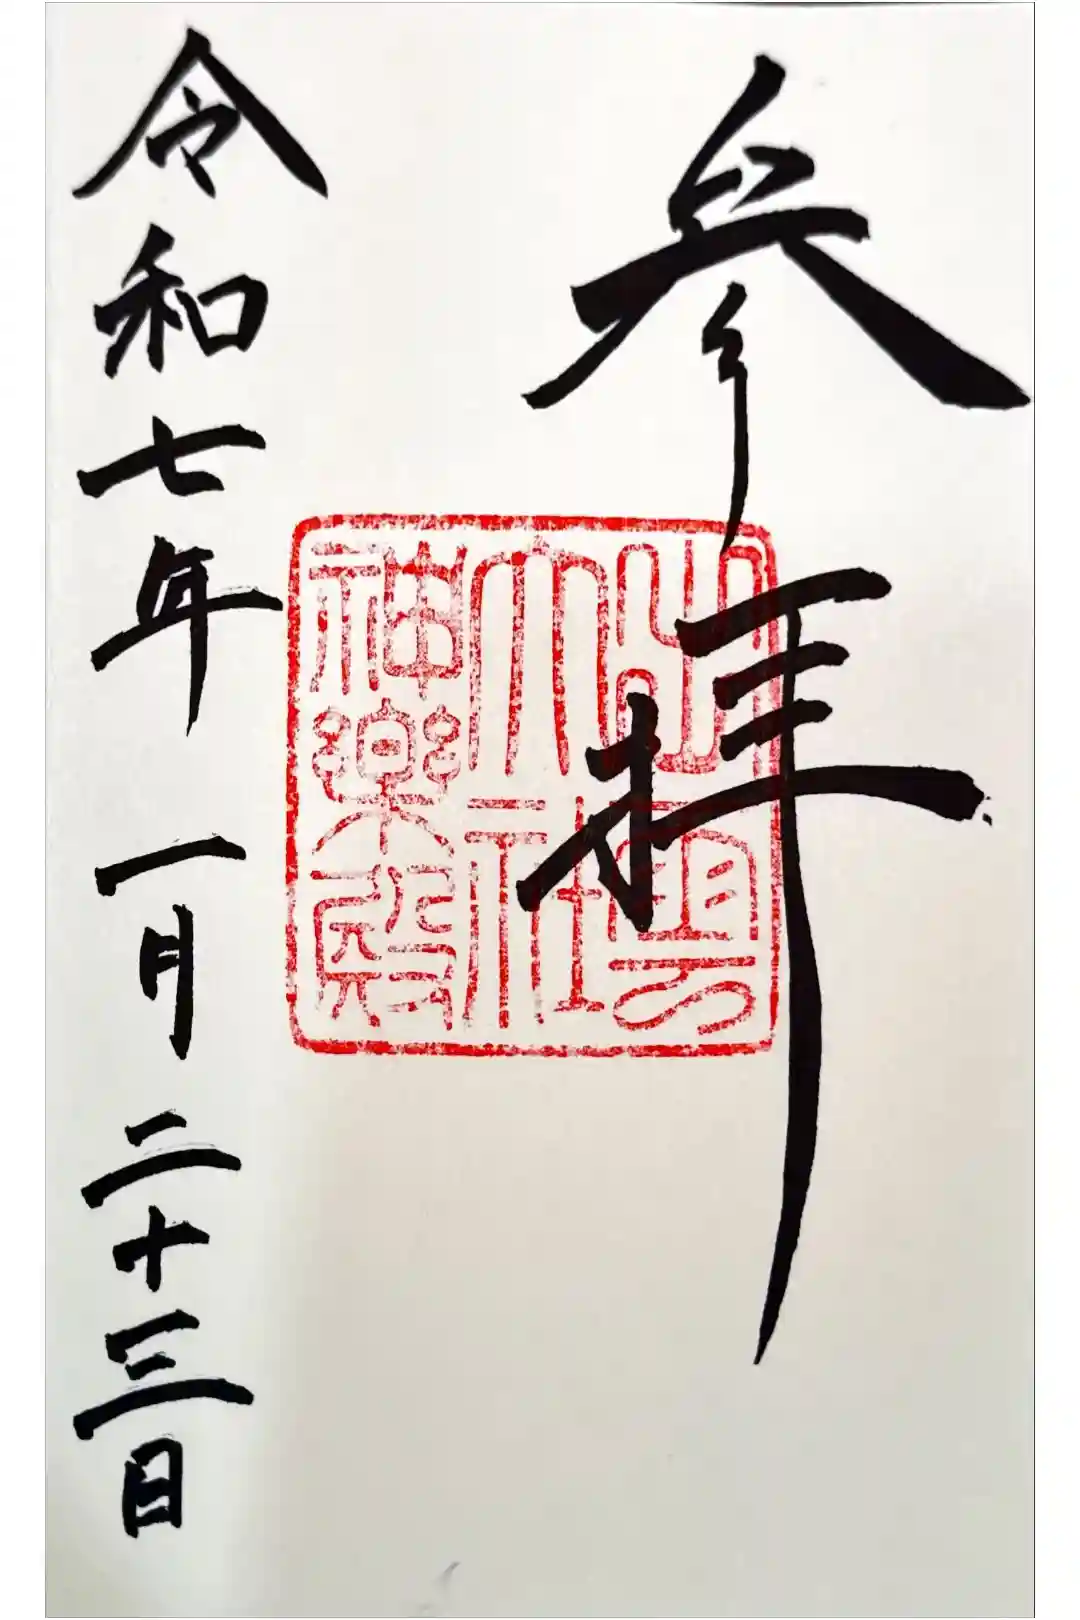 参拝
出雲
大社
神楽殿
令和七年 一月 二十三日